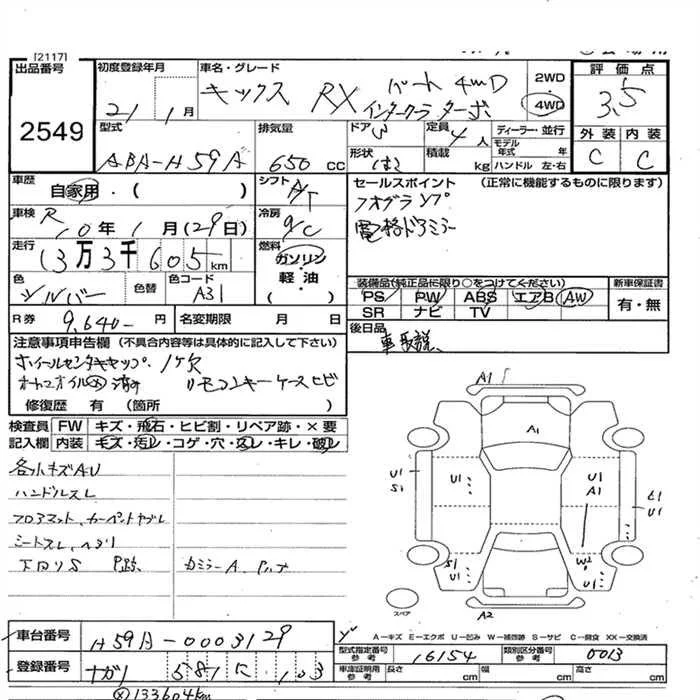 [2117]
出品番号
2549
初度登録年月
21年1月
車名・グレード
キックス RX
インタークーラーターボ 4WD
2WD
4WD
評価点
3.5
外装 内装
C C
型式
ABA-H59A
排気量
650 cc
ドア
3
形状
はこ
定員
4人
積載
kg
ディーラー・並行
モデル年式 年
ハンドル 左・右
車歴
自家用・( )
シフト
AT
セールスポイント (正常に機能するものに限ります)
フオグランプ
電格ドアミラー
車検
R10年1月(29日)
冷房
A/C
走行
13万3千605km
燃料
ガソリン
軽油
( )
色
シルバー
色替
色コード
A31
装備品(純正品に限り○をつけてください)
PS PW ABS エアB AW
SR ナビ TV
新車保証書
有・無
R券
9,640-
名変期限 月 日
後日品
車取説
注意事項申告欄 (不具合内容等は具体的に記入して下さい)
ホイールセンターキャップ 1ケ欠
リモコンキーケースヒビ
修復歴 有 (箇所 )
検査員記入欄
FW キズ・飛石・ヒビ割・リペア跡・×要
内装 キズ・汚レ・コゲ・穴・スレ・キレ・破レ
各小キズAU
ハンドルスレ
フロアマット、カーペットヤブレ
シートスレ、ヘタリ
下回りS
カミラーA
A1
A1
U1
S1
U1
U1
A1
U1
S1
U1
W2
U1
スペア
A2
A-キズ E-エクボ U-凹み W-補修跡 S-サビ C-腐食 XX-交換済
車台番号
H59A-0003129
型式指定番号
参考
16154
類別区分番号
参考
0013
登録番号
581
103
車庫証明用
参考
長さ cm
幅 cm
高さ cm
133604km